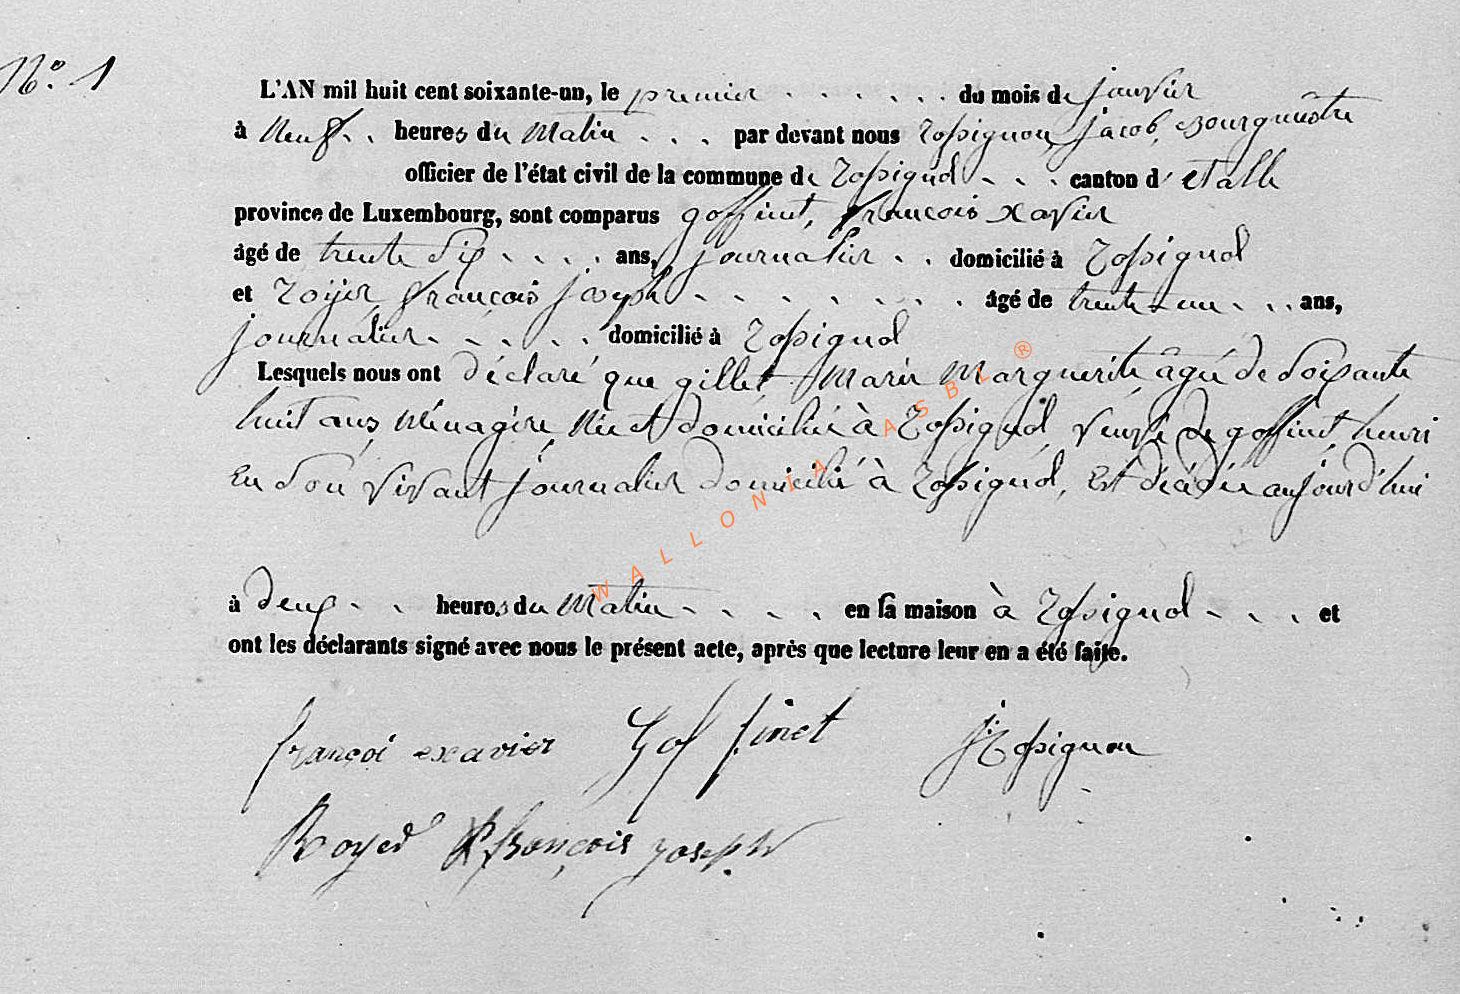 N° 1
L'AN mil huit cent soixante-un, le premier du mois de janvier
à neuf heures du matin par devant nous Rossignon jacob, Bourgmestre
officier de l'état civil de la commune de Rossignol canton d'Etalle
province de Luxembourg, sont comparus goffinet, françois xavier
âgé de trente six ans, journalier domicilié à Rossignol
et Royer françois joseph âgé de trente-un ans,
journalier domicilié à Rossignol
Lesquels nous ont déclaré que gillet Marie Marguerite âgée de soixante
huit ans, Ménagère, Née et domiciliée à Rossignol, veuve de goffinet, henri
En son vivant journalier domicilié à Rossignol, Est décédée aujourd'hui
à deux heures du matin en sa maison à Rossignol et
ont les déclarants signé avec nous le présent acte, après que lecture leur en a été faite.
françoi exavier Goffinet J Rossignon
Royer françois joseph
WALLONIA ASBL ®